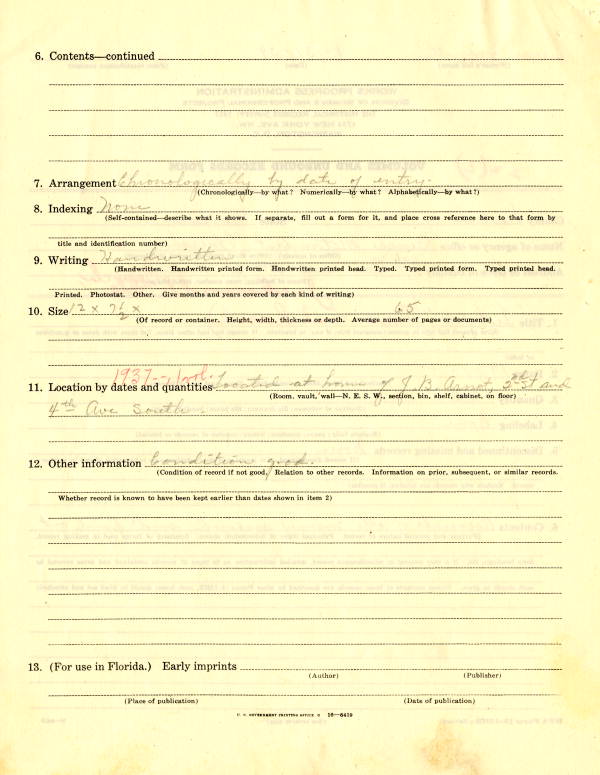 6. Contents—continued
7. Arrangement Chronologically by date of entry.
(Chronologically—by what? Numerically—by what? Alphabetically—by what?)
8. Indexing None
(Self-contained—describe what it shows. If separate, fill out a form for it, and place cross reference here to that form by
title and identification number)
9. Writing Handwritten
(Handwritten. Handwritten printed form. Handwritten printed head. Typed. Typed printed form. Typed printed head.
Printed. Photostat. Other. Give months and years covered by each kind of writing)
10. Size 12 x 7½ x 65
(Of record or container. Height, width, thickness or depth. Average number of pages or documents)
1937--1 vol.
11. Location by dates and quantities Located at home of J. B. St and
(Room, vault, wall—N. E. S. W., section, bin, shelf, cabinet, on floor)
4th Ave South
12. Other information Condition good.
(Condition of record if not good. Relation to other records. Information on prior, subsequent, or similar records.
Whether record is known to have been kept earlier than dates shown in item 2)
13. (For use in Florida.) Early imprints
(Author) (Publisher)
(Place of publication) (Date of publication)
U. S. GOVERNMENT PRINTING OFFICE 16—6419